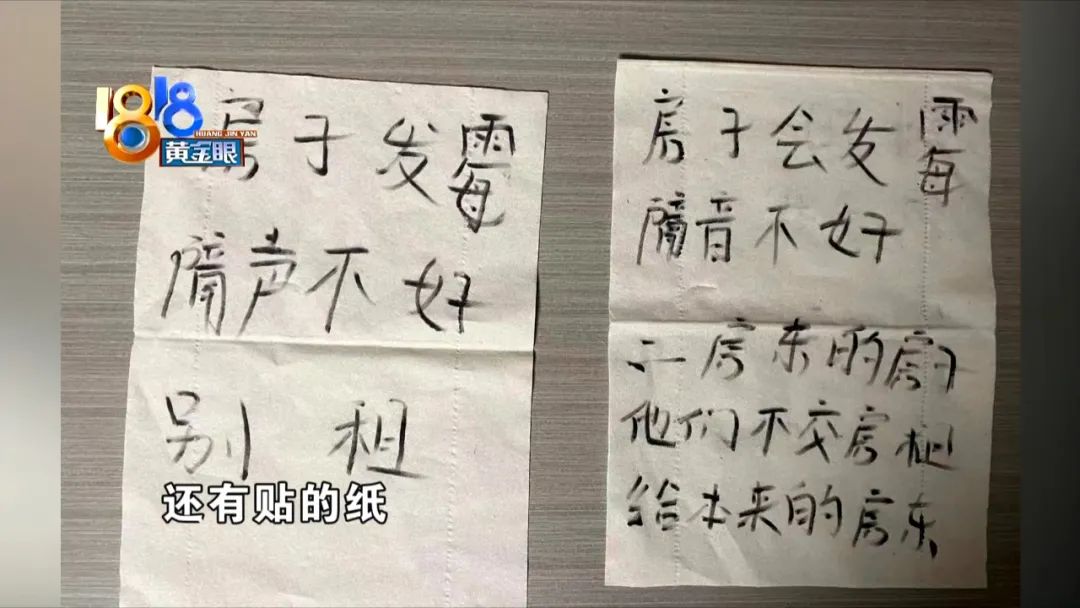 1818
HUANG JIN YAN
黄金眼
房子发霉
隔声不好
别租
还有贴的纸
房子会发霉
隔音不好
二房东的房子
他们不交房租
给本来的房东